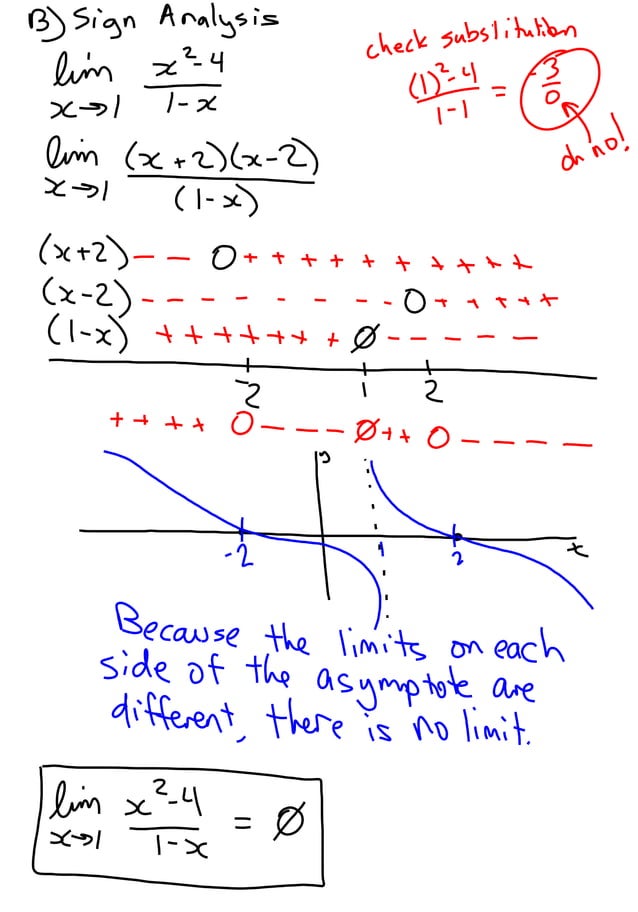 B) Sign Analysis
lim x→1 (x²-4)/(1-x)
check substitution
((1)²-4)/(1-1) = -3/0
oh no!
lim x→1 ((x+2)(x-2))/((1-x))
(x+2) - - 0 + + + + + + + + + +
(x-2) - - - - - - - - - 0 + + + + +
(1-x) + + + + + + + Ø - - - - - -
-2 1 2
+ + + + 0 - - - - Ø + + 0 - - - - -
y
-2 1 2 x
Because the limits on each
side of the asymptote are
different, there is no limit.
lim x→1 (x²-4)/(1-x) = Ø